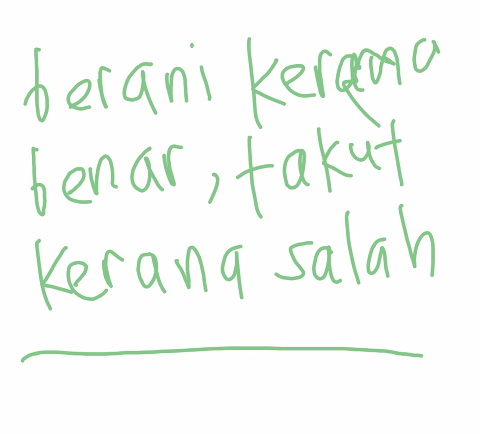 berani kerana
benar, takut
kerana salah